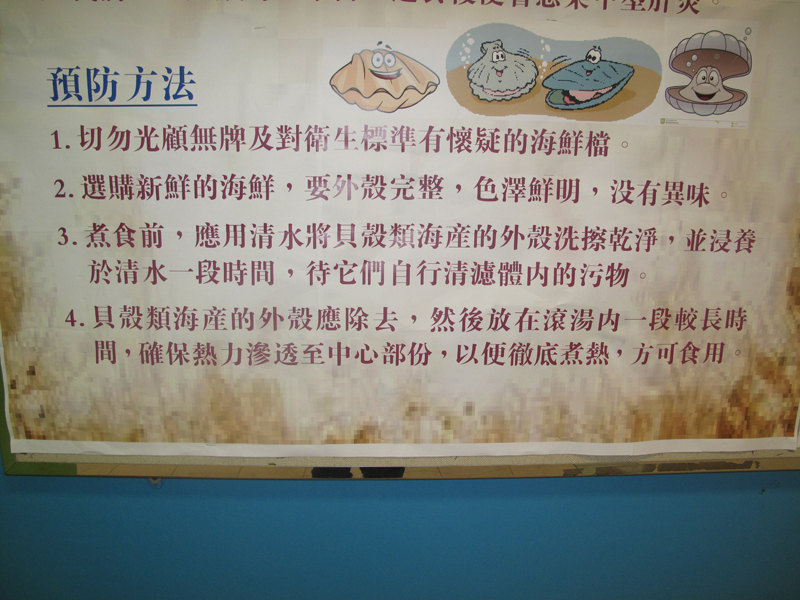 預防方法
1. 切勿光顧無牌及對衛生標準有懷疑的海鮮檔。
2. 選購新鮮的海鮮，要外殼完整，色澤鮮明，没有異味。
3. 煮食前，應用清水將貝殼類海產的外殼洗擦乾淨，並浸養
於清水一段時間，待它們自行清濾體内的污物。
4. 貝殼類海產的外殼應除去，然後放在滾湯内一段較長時
間，確保熱力滲透至中心部份，以便徹底煮熱，方可食用。